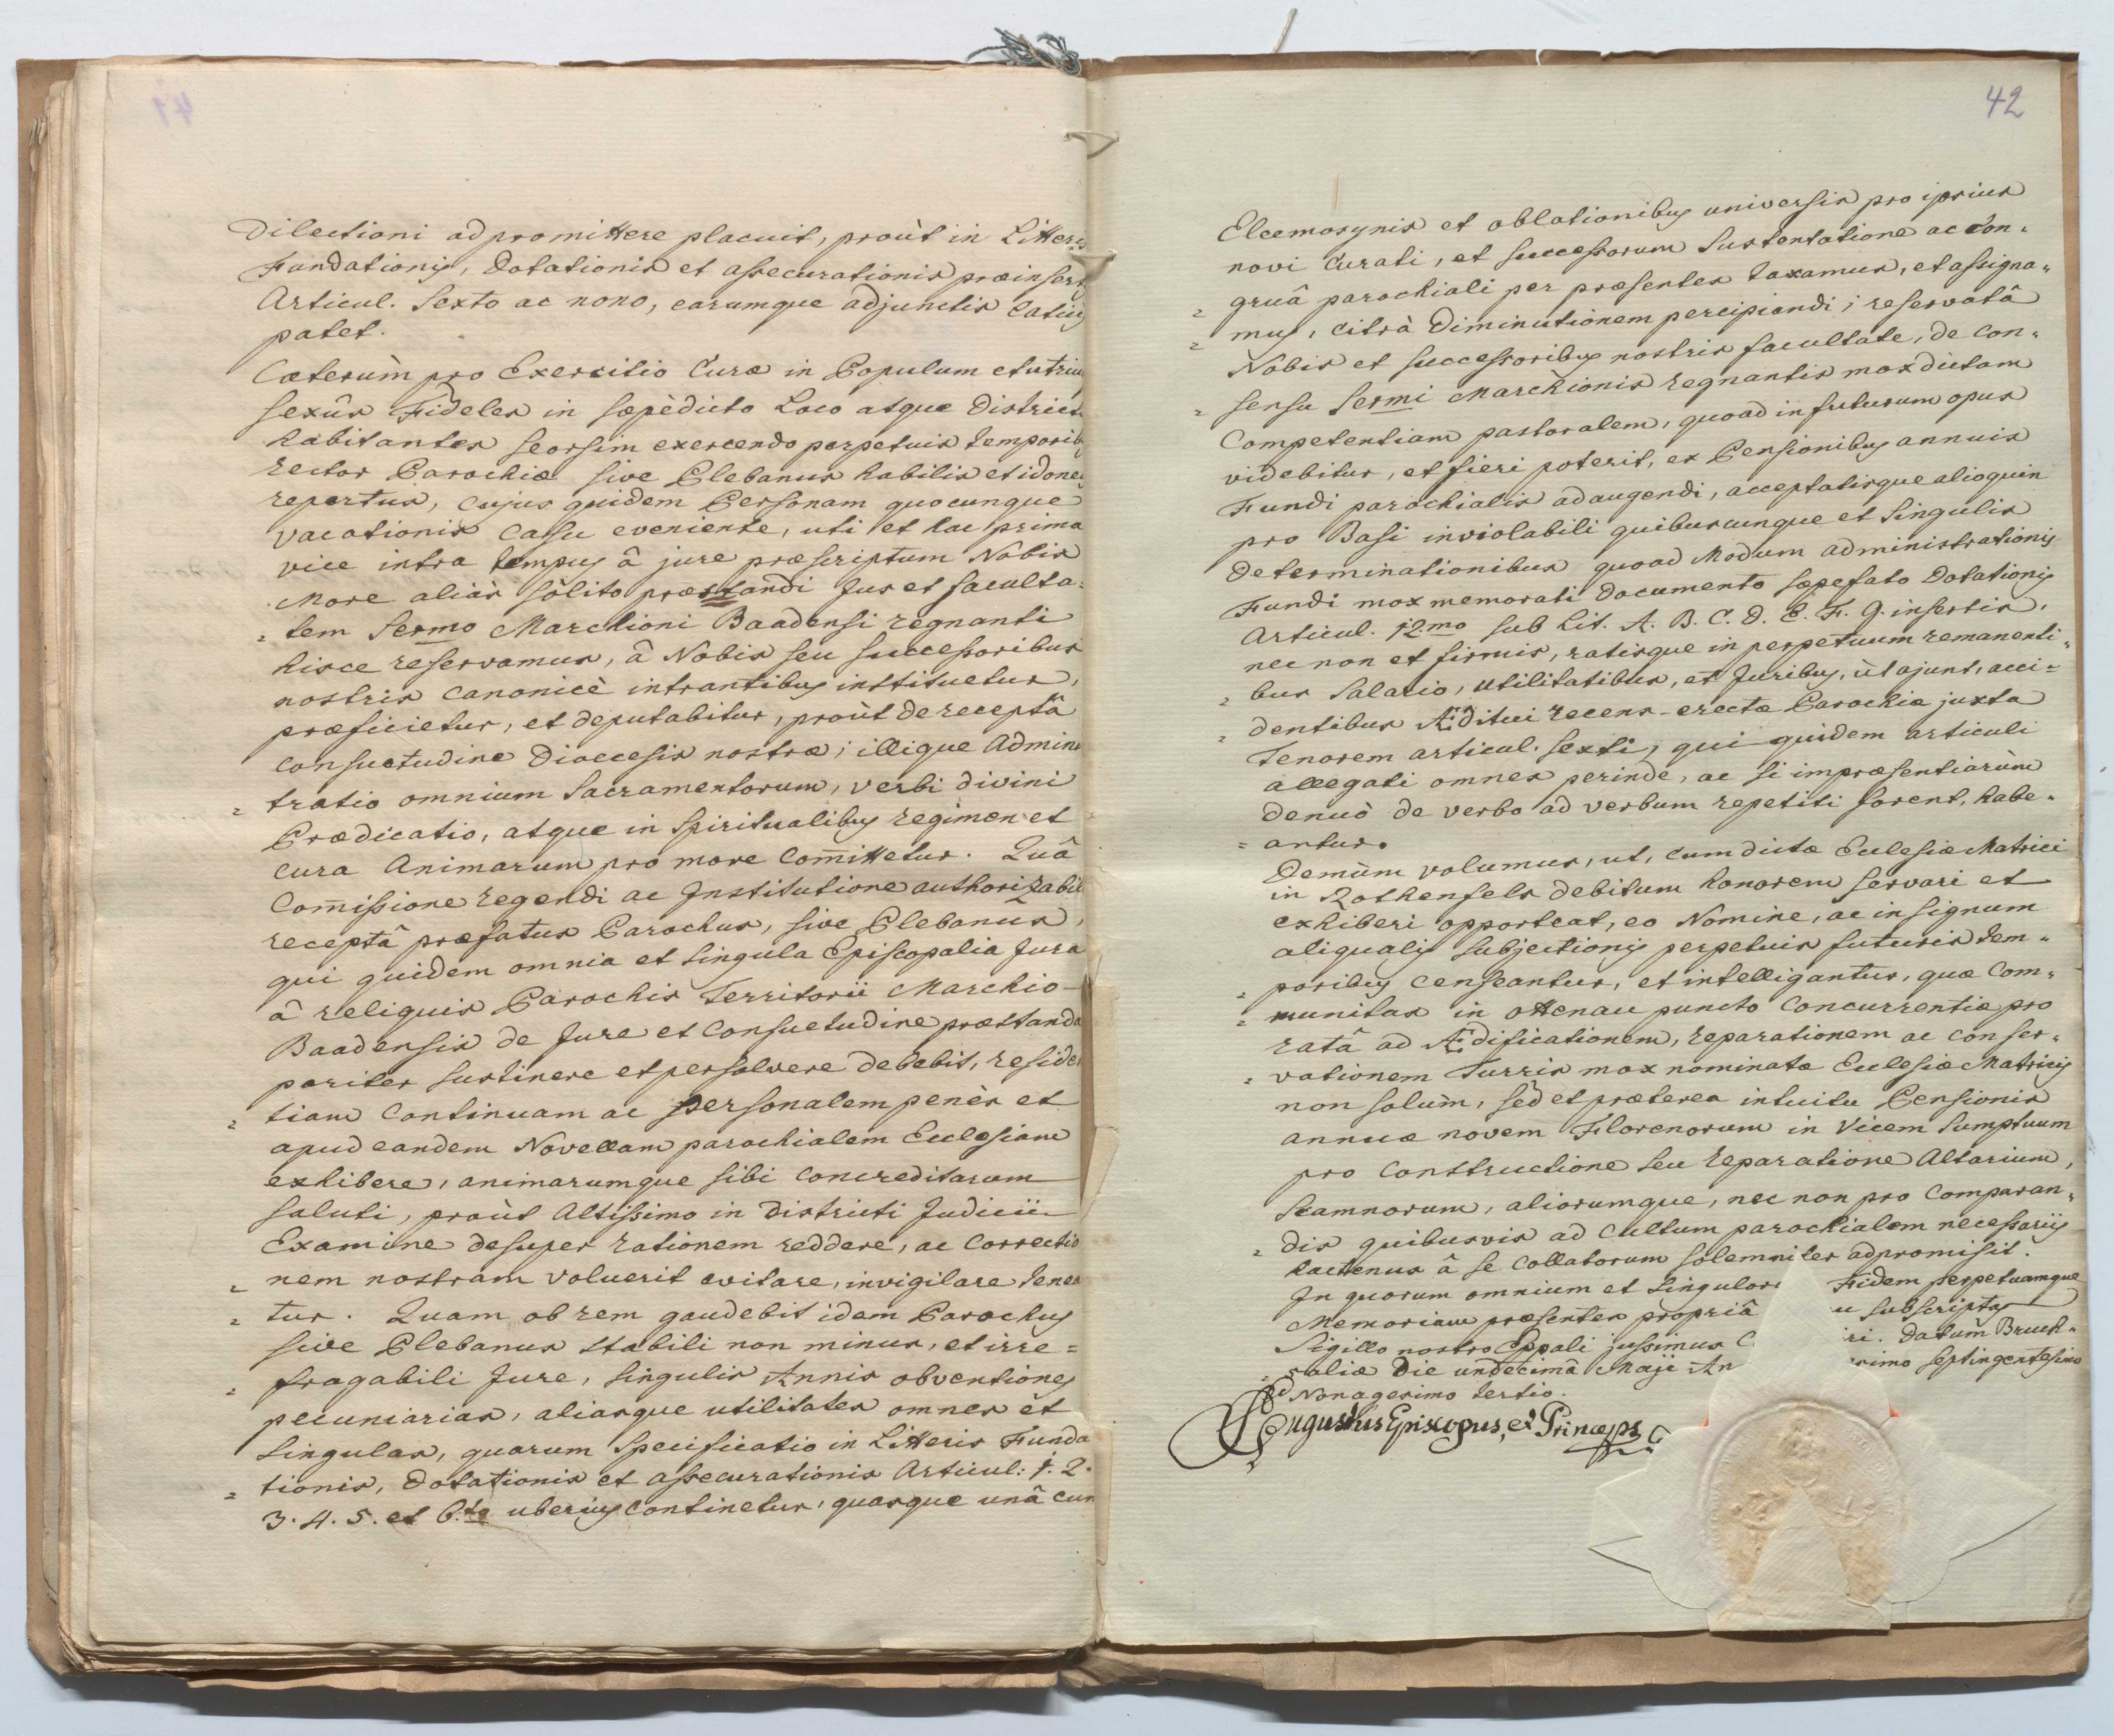 Dilectioni adpromittere placuit, proùt in Litteris
Fundationis, Dotationis et assecurationis præinsert
Articul. Sexto ac nono, earumque adjunctis latius
patet.
Cæterùm pro Exercitio Curæ in Populum et utrius
sexûs Fideles in sæpèdicto Loco atque District
habitantes seorsim exercendo perpetuis temporib
rector Parochiæ sive Plebanus habilis et idone
repertus, cujus quidem Personam quocunque
vacationis Cassu eveniente, uti et hac prima
vice intra tempus â jure præscriptum Nobis
More aliàs sòlito præstandi Jus et faculta=
=tem Sermo Marchioni Baadensi regnanti
hisce reservamus, â Nobis seu successoribus
nostris Canonicè intrantibus instituetur,
præficietur, et deputabitur, proùt de receptâ
consuetudine Dioecesis nostræ; illique Admini
=tratio omnium Sacramentorum, verbi divini
Prædicatio, atque in Spiritualibus regimen et
cura Animarum pro more Com̄ittetur. Quâ
Com̄issione regendi ac Institutione authorizabil
receptâ præfatus Parochus, sive Plebanus,
qui quidem omnia et singula Episcopalia Jura
â reliquis Parochis Territorii Marchio-
Baadensis de Jure et Consuetudine præstanda
pariter sustinere et persolvere debebit, residen
=tiam Continuam ac personalem penès et
apud eandem Novellam parochialem Ecclesiam
exhibere, animarumque sibi Concreditarum
saluti, proùt Altissimo in districti Judicii
Examine desuper rationem reddere, ac Correctio
=nem nostram voluerit evitare, invigilare tenea
=tur. Quam ob rem gaudebit idem Parochus
sive Plebanus stabili non minus, et irre=
=fragabili Jure, singulis Annis obventiones
pecuniarias, aliasque utilitates omnes et
singulas, quarum Specificatio in Litteris Funda
=tionis, Dotationis et assecurationis Articul: 1. 2.
3. 4. 5. et 6.to uberius continetur, quasque unâ cum
42
Eleemosynis et oblationibus universis pro ipsius
novi Curati, et successorum Sustentatione ac Con=
=gruâ parochiali per præsentes taxamus, et assigna=
=mus, citrà Diminutionem percipiendi; reservatâ
Nobis et successoribus nostris facultate, de Con=
=sensu Sermi Marchionis regnantis mox dictam
Competentiam pastoralem, quoad in futurum opus
videbitur, et fieri poterit, ex Pensionibus annuis
Fundi parochialis adaugendi, acceptatisque alioquin
pro Basi inviolabili quibuscunque et Singulis
Determinationibus quoad Modum administrationis
Fundi mox memorati documento sæpefato Dotationis
Articul. 12.mo sub Lit. A. B. C. D. E. F. G. insertis,
nec non et firmis, ratisque in perpetuum remanenti=
=bus Salario, utilitatibus, et Juribus, ùt ajunt, acci=
=dentibus Æditui recens-erectæ Parochiæ juxta
Tenorem articul. Sexti, qui quidem articuli
allegati omnes perinde, ac si impræsentiarùm
denuò de verbo ad verbum repetiti forent, habe=
=antur.
Demùm volumus, ut, cum dictæ Ecclesiæ Matrici
in Rothenfels debitum honorem servari et
exhiberi opporteat, eo Nomine, ac in signum
aliqualis Subjectionis perpetuis futuris tem=
=poribus censeantur, et intelligantur, quæ Com=
=munitas in Ottenau puncto Concurrentiæ pro
ratâ ad Ædificationem, reparationem ac conser=
=vationem Turris mox nominatæ Ecclesiæ Matricis
non solùm, sed et præterea intuitu Pensionis
annuæ novem Florenorum in Vicem Sumptuum
pro Constructione seu reparatione Altarium,
Scamnorum, aliorumque, nec non pro Comparan=
=dis quibusvis ad Cultum parochialem necessariis
hactenus â se Collatorum solemniter adpromisit.
In quorum omnium et singulor Fidem perpetuamque
Memoriam præsentes propriâ u subscriptas
Sigillo nostro Eppali jussimus C ri. Datum Bruch=
=saliæ Die undecimâ Maji An simo Septingentesimo
Nonagesimo tertio.
Augustus Episcopus, et Princeps